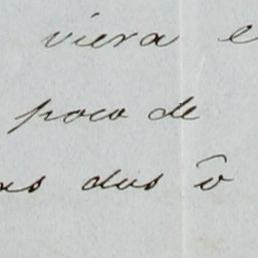 viera e
poco de
as dos ô